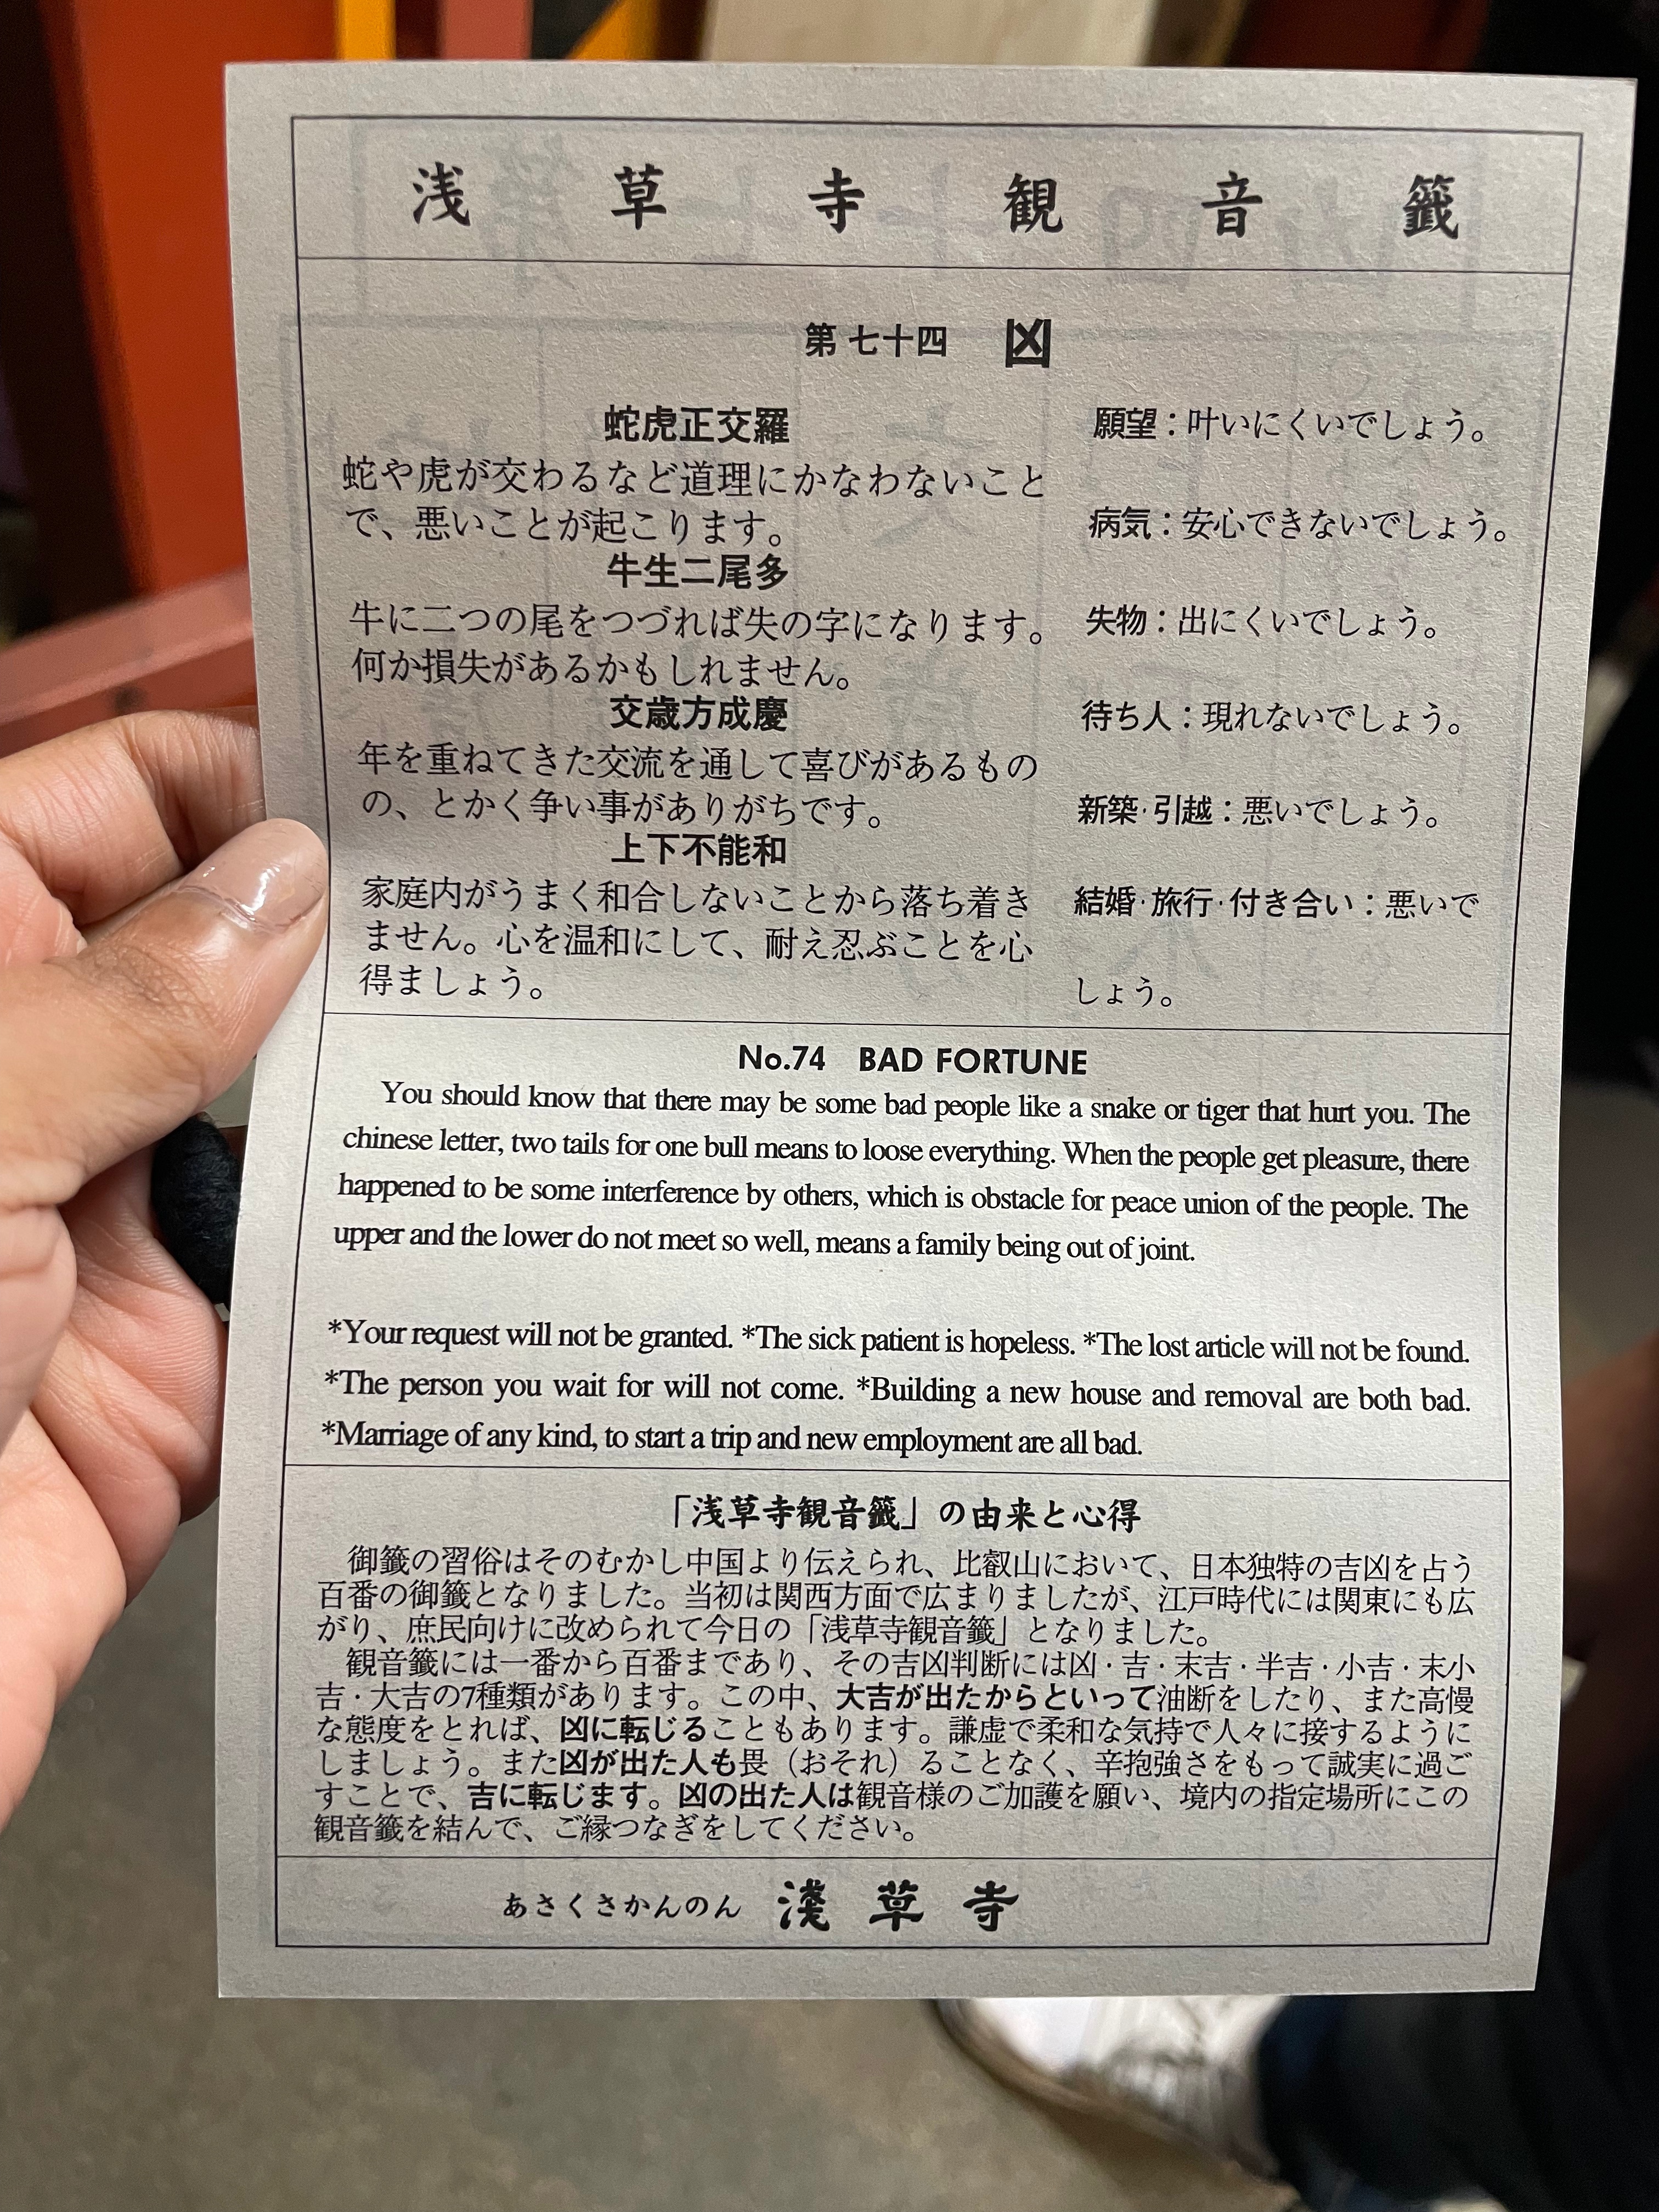 浅草寺観音籤
第七十四 凶
蛇虎正交羅
蛇や虎が交わるなど道理にかなわないこと
で、悪いことが起こります。
牛生二尾多
牛に二つの尾をつづれば失の字になります。
何か損失があるかもしれません。
交歳方成慶
年を重ねてきた交流を通して喜びがあるもの
の、とかく争い事がありがちです。
上下不能和
家庭内がうまく和合しないことから落ち着き
ません。心を温和にして、耐え忍ぶことを心
得ましょう。
願望：叶いにくいでしょう。
病気：安心できないでしょう。
失物：出にくいでしょう。
待ち人：現れないでしょう。
新築・引越：悪いでしょう。
結婚・旅行・付き合い：悪いで
しょう。
No.74 BAD FORTUNE
You should know that there may be some bad people like a snake or tiger that hurt you. The
chinese letter, two tails for one bull means to loose everything. When the people get pleasure, there
happened to be some interference by others, which is obstacle for peace union of the people. The
upper and the lower do not meet so well, means a family being out of joint.
*Your request will not be granted. *The sick patient is hopeless. *The lost article will not be found.
*The person you wait for will not come. *Building a new house and removal are both bad.
*Marriage of any kind, to start a trip and new employment are all bad.
「浅草寺観音籤」の由来と心得
御籤の習俗はそのむかし中国より伝えられ、比叡山において、日本独特の吉凶を占う
百番の御籤となりました。当初は関西方面で広まりましたが、江戸時代には関東にも広
がり、庶民向けに改められて今日の「浅草寺観音籤」となりました。
観音籤には一番から百番まであり、その吉凶判断には凶・吉・末吉・半吉・小吉・末小
吉・大吉の7種類があります。この中、大吉が出たからといって油断をしたり、また高慢
な態度をとれば、凶に転じることもあります。謙虚で柔和な気持で人々に接するように
しましょう。また凶が出た人も畏（おそれ）ることなく、辛抱強さをもって誠実に過ご
すことで、吉に転じます。凶の出た人は観音様のご加護を願い、境内の指定場所にこの
観音籤を結んで、ご縁つなぎをしてください。
あさくさかんのん 淺草寺